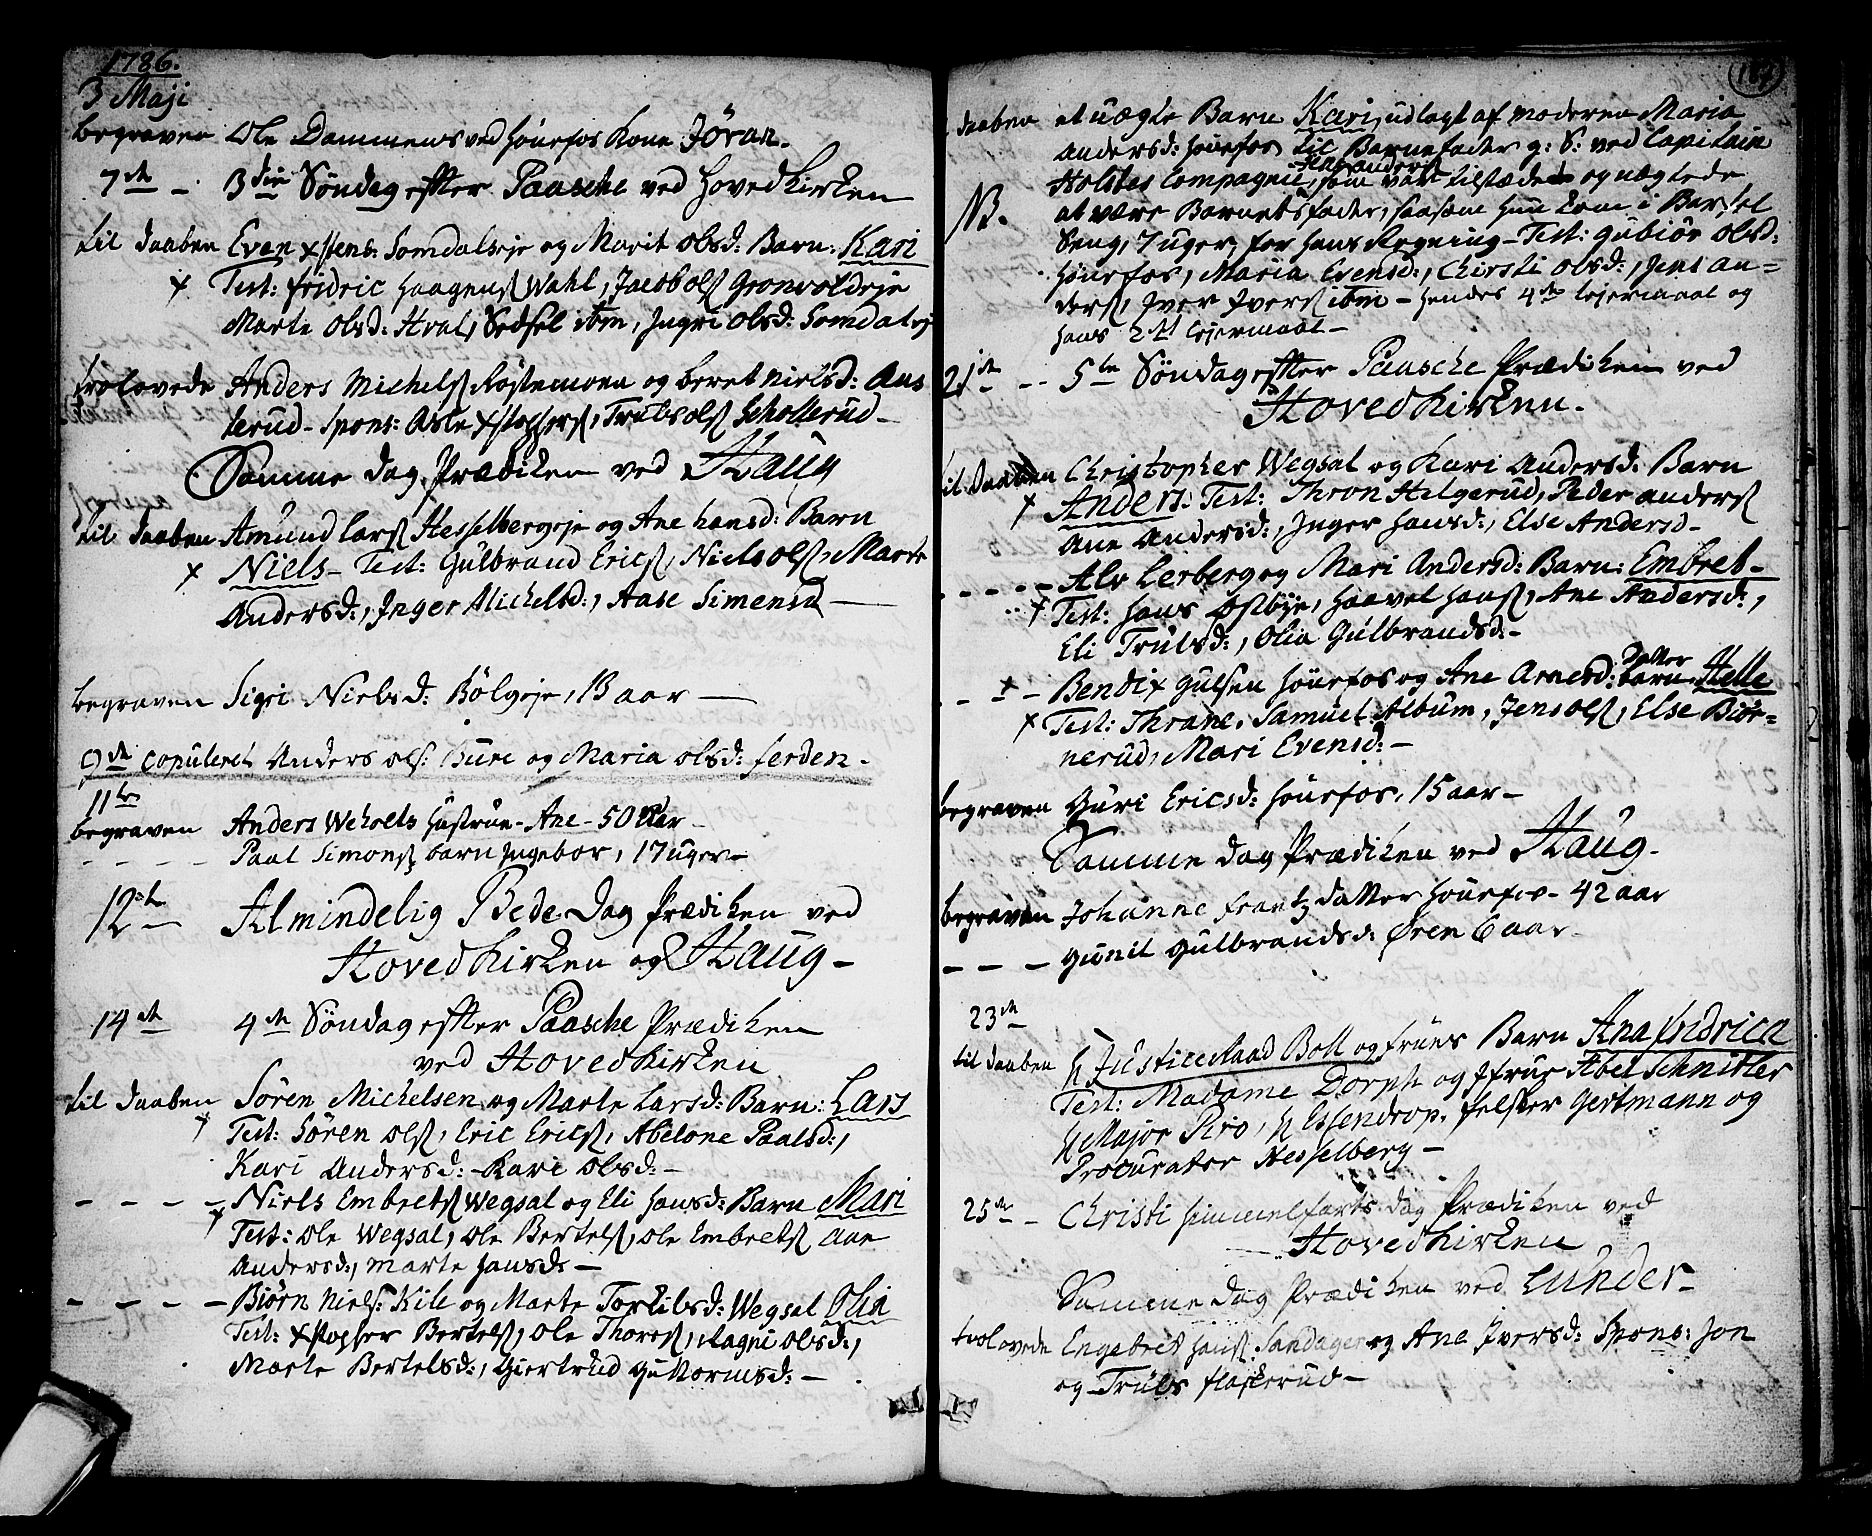 1786.
3 Maji
begraven Ole Dammens ved Hönefos Kone Jöran.
7de - 3die Söndag efter Paasche ved Hovedkirken
til daaben Even Xstens: Somdalseje og Marit Olsd: Barn: Kari
x Test: fridric Haagens Wahl, Jacob ols Gronvoldeje
Marte Olsd: Hval, Sedsel ibm, Ingri Olsd: Somdalej
trolovede Anders Michels Rostemoen og beret Nielsd: Aus
terud - Spons: Asle Xstophers, Truls ols Schollerud -
Samme dag Prædiken ved Haug
til daaben Amund Lars Hesselbergeje og Ane hansd: Barn
x Niels - Test: Gulbrand Erics, Niels ols, Marte
Andersd:, Inger Michelsd:, Aase Simensd -
begraven Sigri Nielsd: Bölgeje, 13 aar -
9de copuleret Anders ols: Bure og Maria olsd: ferden -
11te
begraven Anders Weholts Hustrue - Ane - 50 aar -
- - - - Paal Simons barn Ingebor, 17 uger -
12te - Almindelig Bede Dag Prædiken ved
Hovedkirken og Haug -
14de 4de Söndag efter Paasche Prædiken
ved Hovedkirken
til daaben Sören Michelsen og Marte Larsd: Barn: Lars
x Test: Sören ols, Eric Erics, Abelone Paalsd:,
Kari Andersd: - Kari Olsd: -
- - - - Niels Embrets Wegsal og Eli Hansd: Barn Mari
x Test: Ole Wegsal, Ole Bertels, Ole Embrets Ane
Andersd:, Marte Hansd: -
- - - - Biörn Niels: Kile og Marte Torkilsd: Wegsal Olia
Test: Xstopher Bertels, Ole Thores, Ragni Olsd:,
Marte Bertelsd:, Giertrud Guttormsd: -
daaben et uægte Barn Kari, udlagt af moderen Maria
Andersd: Hönefos til Barnefader g: S: ved Capitain
Jens Anders
Holstes Compagnie, som var tilstæde og nægtede
NB. at være Barnets fader, saasom hun kom i Barsel
Seng, 7 uger for hans Regning - Test: Gubiör Olsd:
Hönefos, Maria Evensd:, Chirsti Olsd:, Jens An=
ders, Iver Ivers ibm - hendes 4de lejermaal og
hans 2det lejermaal -
21de - - 5te Söndag efter Paasche Prædiken ved
Hovedkirken -
til daaben Christopher Wegsal og Kari Andersd: Barn
x Anders: Test: Thron Hilgerud, Peder Anders
Ane Andersd:, Inger Hansd:, Else Andersd -
- - - - Alv Lerberg og Mari Andersd: Barn: Embret -
x Test: Hans Østbye, Haavel Hans, Ane Andersd:,
Eli Trulsd:, Olia Gulbrandsd: -
Datter
- - x - Bendix Gulsen Hönefos og Ane Arnesd: barn Helle
x Test: Thrane, Samuel Album, Jens ols, Else Biör=
nerud, Mari Evensd: -
begraven Guri Ericsd: Hönefos, 15 aar -
Samme dag Prædiken ved Haug -
begraven Johanne Frantz datter Hönefos - 42 aar
- - - Gunil Gulbrandsd: Øren 6 aar -
23de
til daaben H Justiceraad Boll og fruens Barn Ana fridrica
Test: Madame Dorph og Jfrue Abel Schnitler
H Major Piro, H Essendrop, felster Gertmann og
Procurator Hesselberg -
25de - Christi himmelfarts dag Prædiken ved
Hovedkirken
Samme dag Prædiken ved Lunder -
trolovede Engebret Hans: Sandager og Ane Iversd: Spons: Jon
og Truls flaskerud -